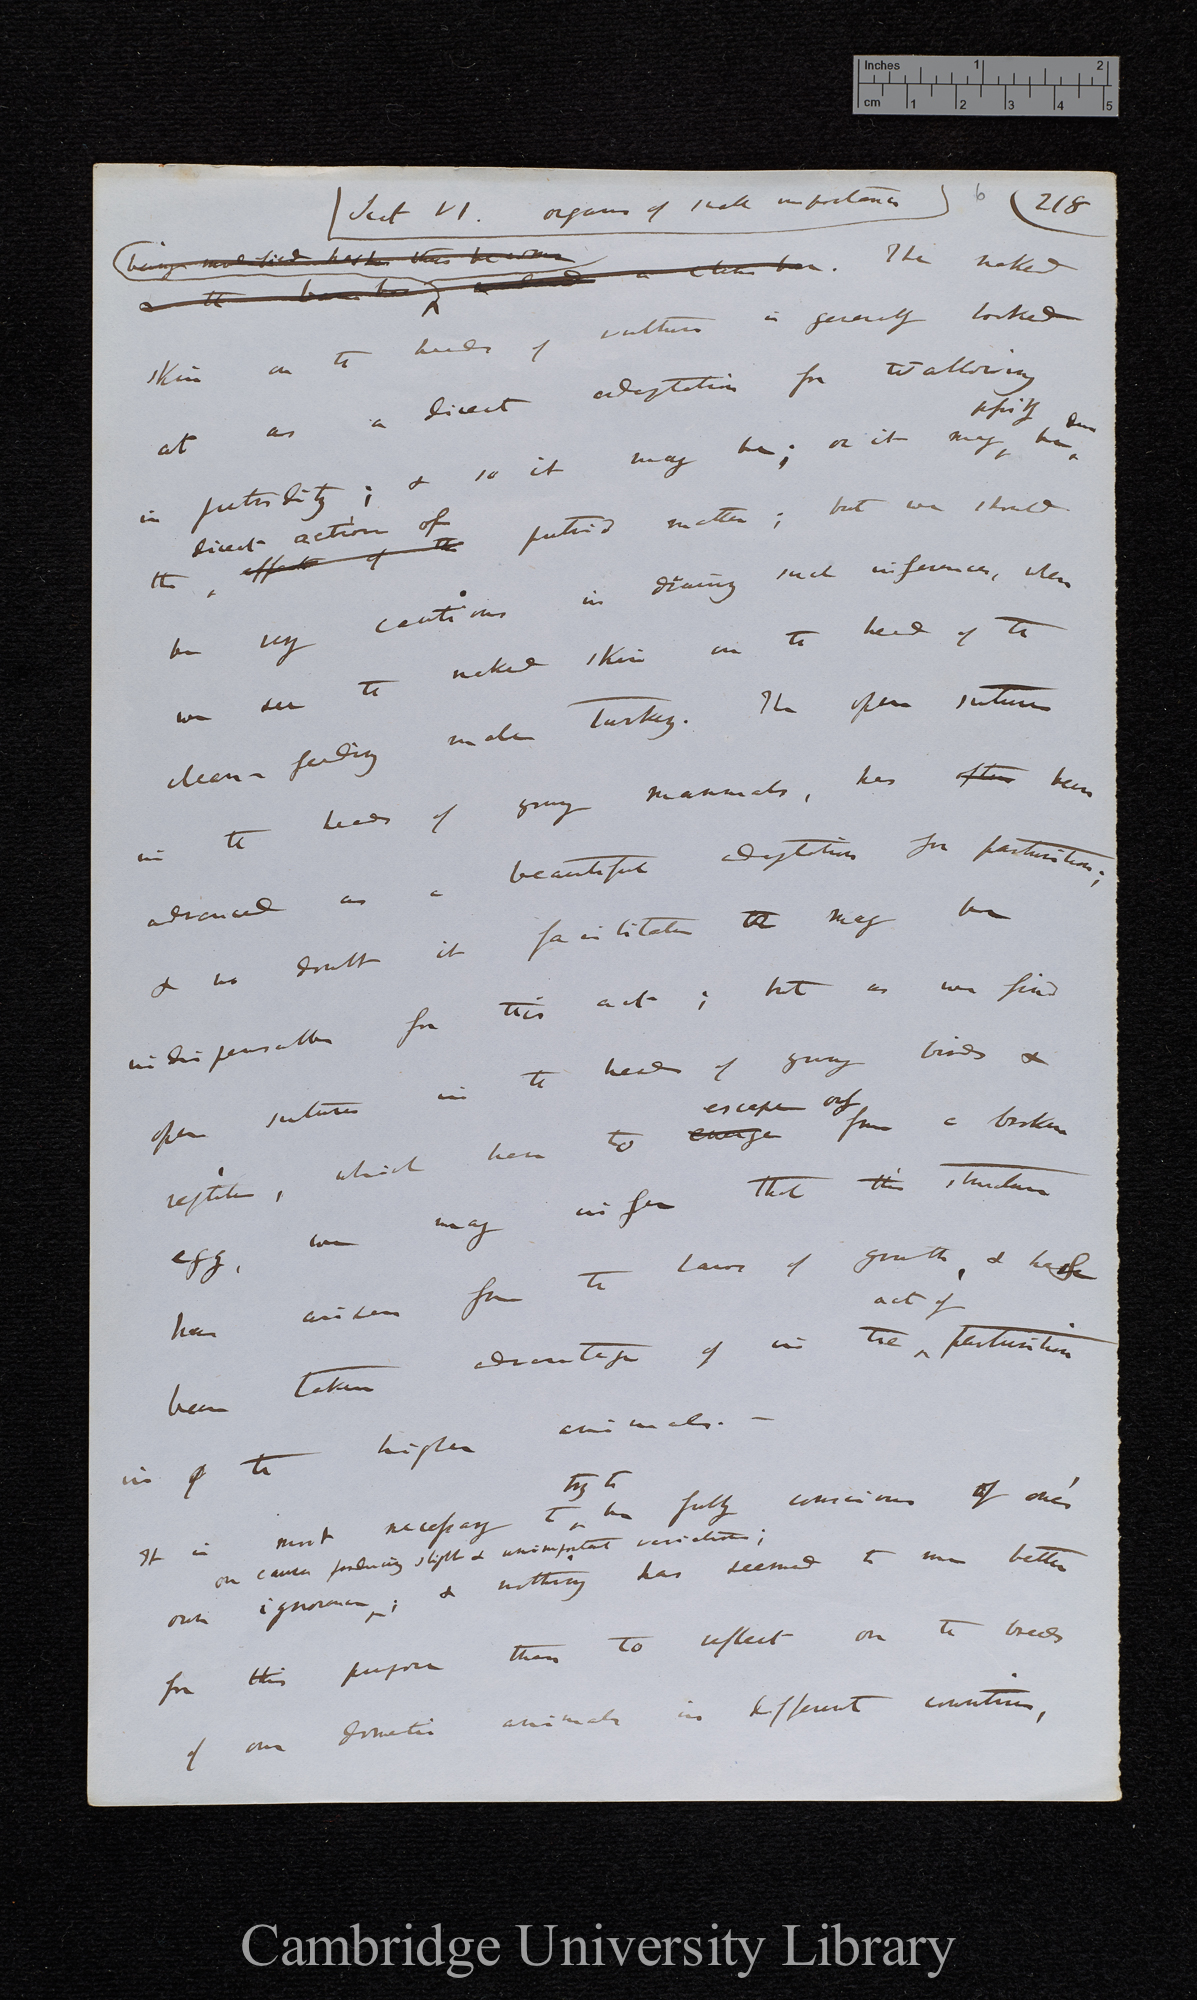 Inches 1 2
cm 1 2 3 4 5
Sect VI. organs of small importance 6 (218
being modified has thus become
a climber. The naked
skin on the heads of vultures is generally looked
at as a direct adaptation for wallowing
possibly due
in putridity; & so it may be; or it may, be,
direct action of
the effects of the putrid matter; but we should
be very cautious in drawing such inferences, when
we see the naked skin on the head of the
clean-feeding male Turkey. The open sutures
in the heads of young mammals, has often been
advanced as a beautiful adaptation for parturition;
& no doubt it facilitates or may be
indispensable for this act; but as we find
open sutures in the heads of young birds &
escape only
reptiles, which have to emerge from a broken
egg, we may infer that this structure
has arisen from the Laws of growth, & has
act of
been taken advantage of in the parturition
in of the higher animals.—
try to
It is most necessary to be fully conscious of one's
on causes producing slight & unimportant variations;
own ignorance; & nothing has seemed to me better
for this purpose than to reflect on the breeds
of our domestic animals in different countries,
Cambridge University Library